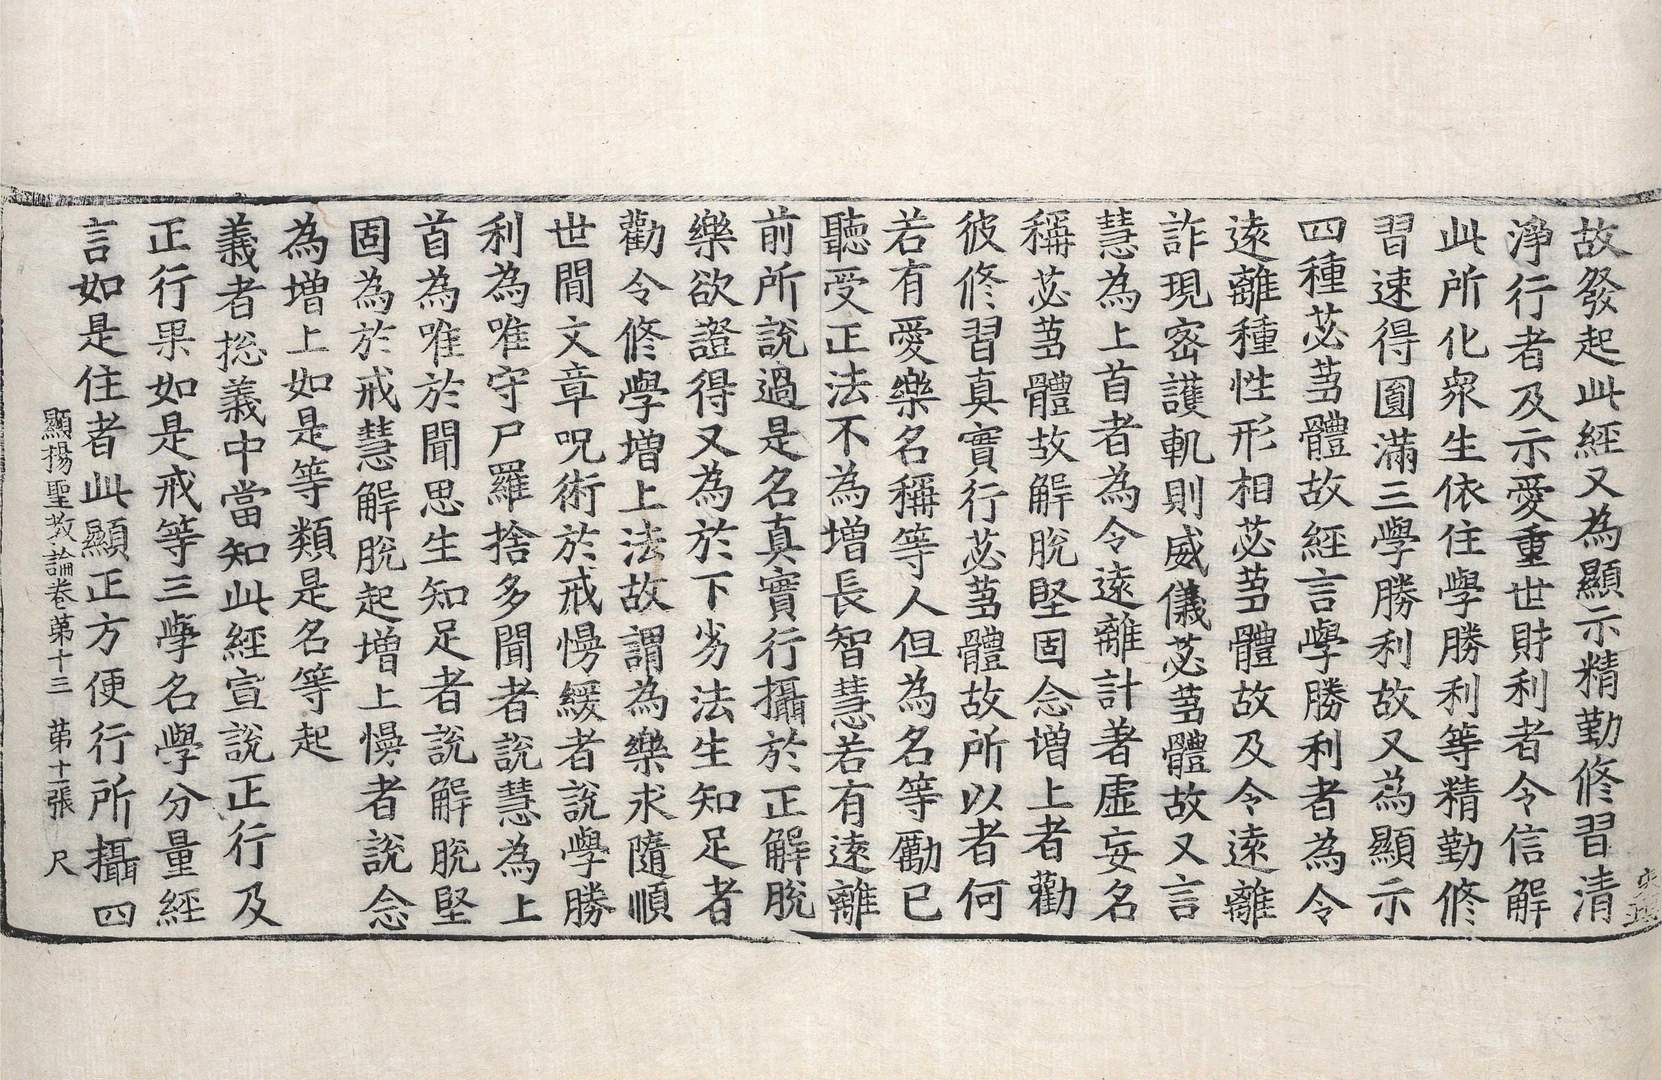 故發起此經又為顯示精勤修習清
淨行者及示愛重世財利者令信解
此所化衆生依住學勝利等精勤修
習速得圓滿三學勝利故又為顯示
四種苾芻體故經言學勝利者為令
遠離種性形相苾芻體故及令遠離
詐現密護軌則威儀苾芻體故又言
慧為上首者為令遠離計著虛妄名
稱苾芻體故解脫堅固念增上者勸
彼修習真實行苾芻體故所以者何
若有愛樂名稱等人但為名等勵已
聽受正法不為增長智慧若有遠離
前所說過是名真實行攝於正解脫
樂欲證得又為於下劣法生知足者
勸令修學增上法故謂為樂求隨順
世間文章呪術於戒慢緩者說學勝
利為唯守尸羅捨多聞者說慧為上
首為唯於聞思生知足者說解脫堅
固為於戒慧解脫起增上慢者說念
為增上如是等類是名等起
義者揔義中當知此經宣說正行及
正行果如是戒等三學名學分量經
言如是住者此顯正方便行所攝四
顯揚聖教論卷第十三 第十張 尺